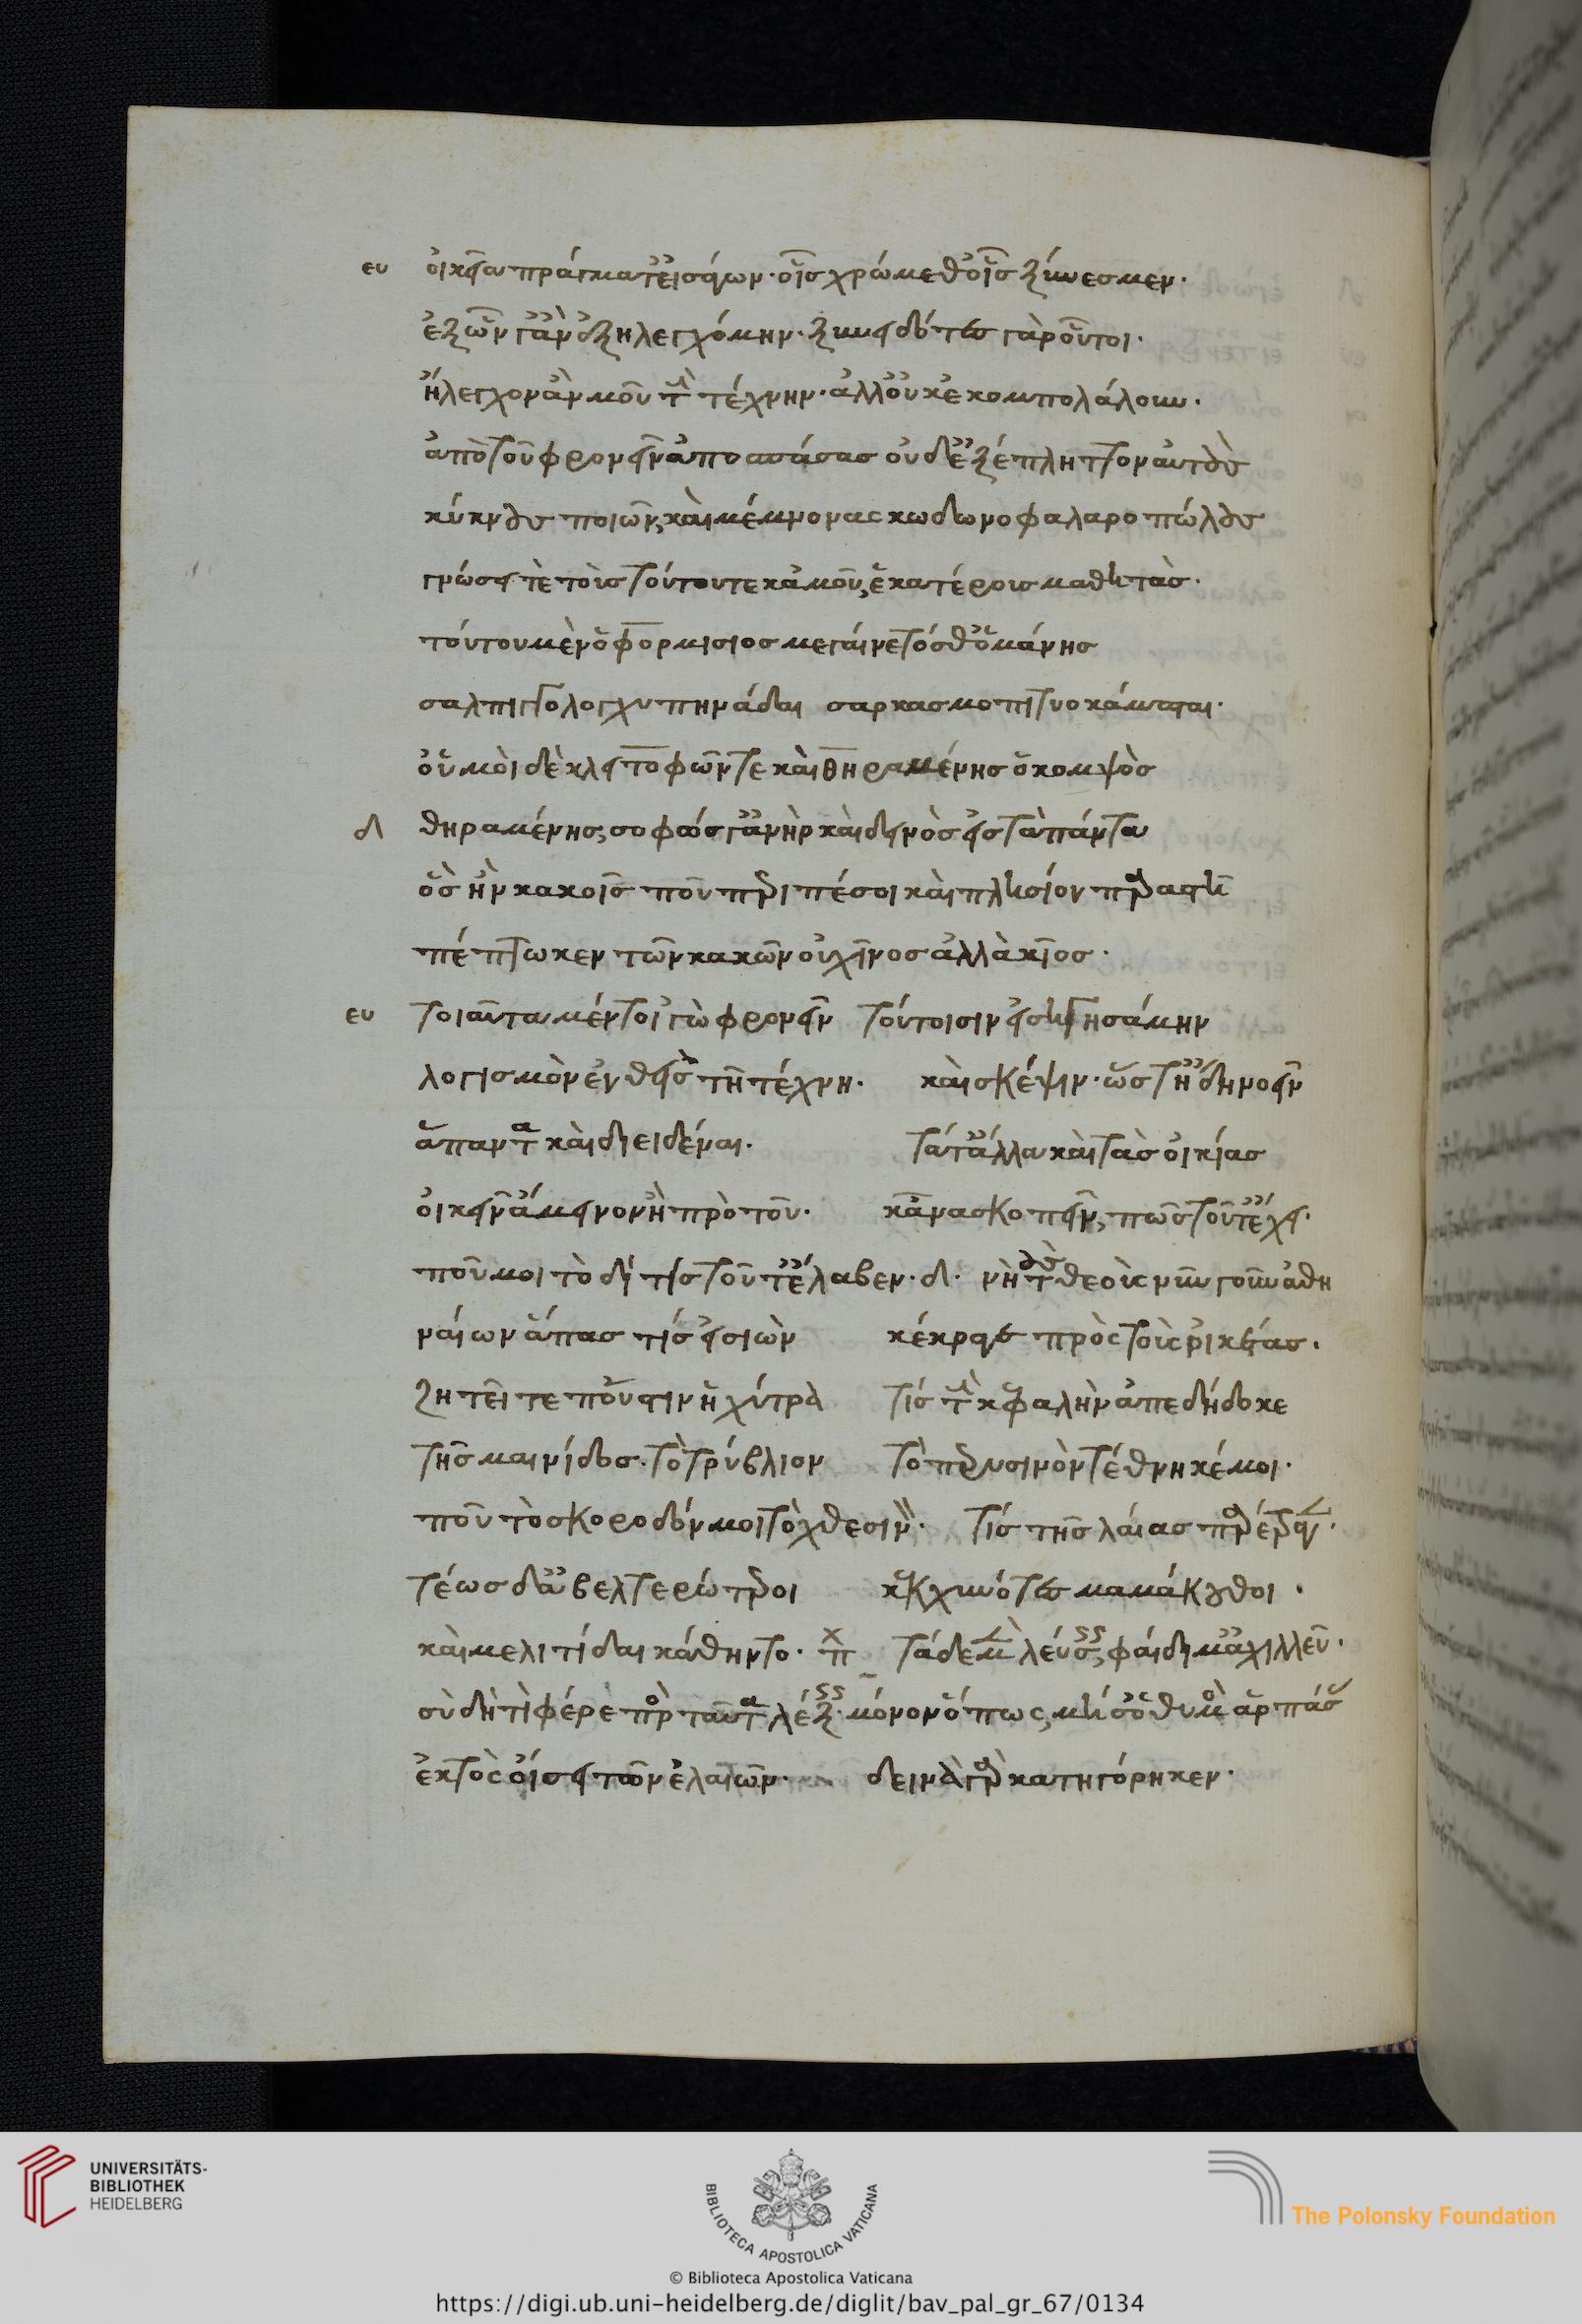 ευ οἰκεῖα πράγματ' εἰσάγων· οἷς χρώμεθ' οἷς ξύνεσμεν·
ἐξ ὧν γ' ἂν ἐξηλεγχόμην· ξυνειδότες γὰρ οὗτοι·
ἤλεγχον ἄν μου τὴν τέχνην· ἀλλ' οὐκ ἐκομπολάκουν·
ἀπὸ τοῦ φρονεῖν ἀποσπάσας οὐδ' ἐξέπληττον αὐτοὺς
κύκνους ποιῶν, καὶ μέμνονας κωδωνοφαλαροπώλους
γνώσει τὲ τοὺς τούτου τε κἀμοῦ, ἑκατέροις μαθητὰς·
τούτου μὲν ὁ φορμίσιος μεγαίνετός θ' ὁ μάνης
σαλπιγγολογχυπηνάδαι σαρκασμοπιτυοκάμπται·
οὑμοὶ δὲ κλειτοφῶν τε καὶ θηραμένης ὁ κομψὸς
δι θηραμένης, σοφός γ' ἀνὴρ καὶ δεινὸς εἰς τὰ πάντα
ὃς ἢν κακοῖς που περιπέσοι καὶ πλησίον παραστῆ
πέπτωκεν τῶν κακῶν οὐ χῖνος ἀλλὰ κῖος·
ευ τοιαῦτα μέντοι 'γὼ φρονεῖν τούτοισιν εἰσηγησάμην
λογισμὸν ἐνθεὶς τῆ τέχνη· καὶ σκέψιν· ὥστ' ἤδη νοεῖν
ἅπαντα καὶ διειδέναι· τά τ' ἄλλα καὶ τὰς οἰκίας
οἰκεῖν ἄμεινον ἢ πρὸ τοῦ· κἀνασκοπεῖν, πῶς τοῦτ' ἔχει·
ποῦ μοι τὸ δὶ τίς τοῦτ' ἔλαβεν· δι· νὴ τοὺς θεοὺς νῦν γοῦν ἀθη
ναίων ἅπας τίς εἰσιὼν κέκραγε πρὸς τοὺς οἰκέτας·
ζητεῖ τε ποῦ 'στιν ἡ χύτρα τίς τὴν κεφαλὴν ἀπεδήδοκε
τῆς μαινίδος· τὸ τρύβλιον τὸ περυσινὸν τέθνηκέ μοι·
ποῦ τὸ σκοροδόν μοι τὸ χθεσινὸν· τίς τῆς λάας παρέτραγεν·
τέως δ' ἀβελτερώτεροι κεχηνότες μαμάκουθοι·
καὶ μελιτίδαι κάθηντο· χπ τάδε μὲν λεύσσεις, φαίδιμ' ἀχιλλεῦ·
σὺ δὴ τὶ φέρε πρὸς ταῦτα λέξεις· μόνον ὅπως, μή σ' ὁ θυμὸς ἁρπάσας
ἐκτὸς οἴσει τῶν ἐλαιῶν· δεινὰ γὰρ κατηγόρηκεν·
UNIVERSITÄTS-
BIBLIOTHEK
HEIDELBERG
BIBLIOTECA APOSTOLICA VATICANA
The Polonsky Foundation
© Biblioteca Apostolica Vaticana
https://digi.ub.uni-heidelberg.de/diglit/bav_pal_gr_67/0134